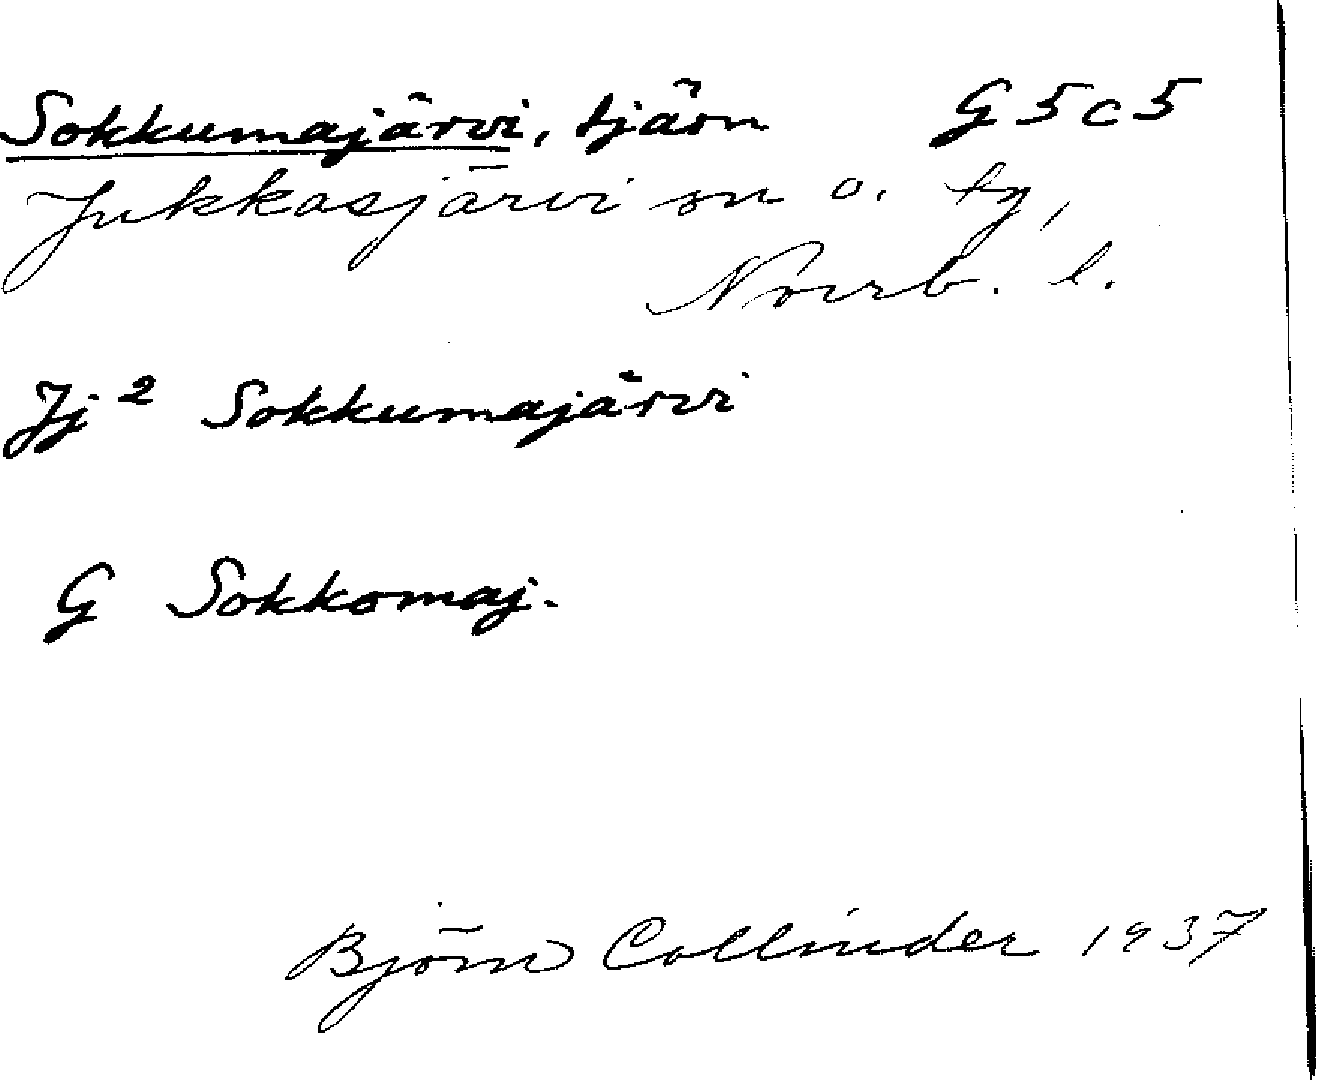 Sokkumajärvi, tjärn G5c5
Jukkasjärvi sn o. tg,
Norrb. l.
Jj² Sokkumajärvi
G Sokkomaj.
Björn Collinder 1937